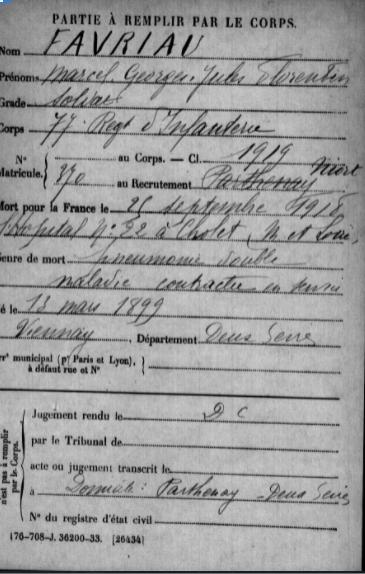 PARTIE À REMPLIR PAR LE CORPS.
Nom FAVRIAU
Prénoms Marcel Georges Jules Florentin
Grade Soldat
Corps 77e Regt d'Infanterie
N° au Corps. — Cl. 1919
Matricule. 370 au Recrutement Parthenay Niort
Mort pour la France le 25 septembre 1918
Hôpital N° 22 à Cholet (M et Loire
Genre de mort pneumonie double
maladie contractée en servi
Né le 13 mars 1899
Viennay, Département Deux Sevre
Arrt municipal (pr Paris et Lyon),
à défaut rue et N°
n'est pas à remplir
par le Corps.
Jugement rendu le D C
par le Tribunal de
acte ou jugement transcrit le
à Domicile: Parthenay Deux Sevres
N° du registre d'état civil
176-708-J. 36200-33. [26434]